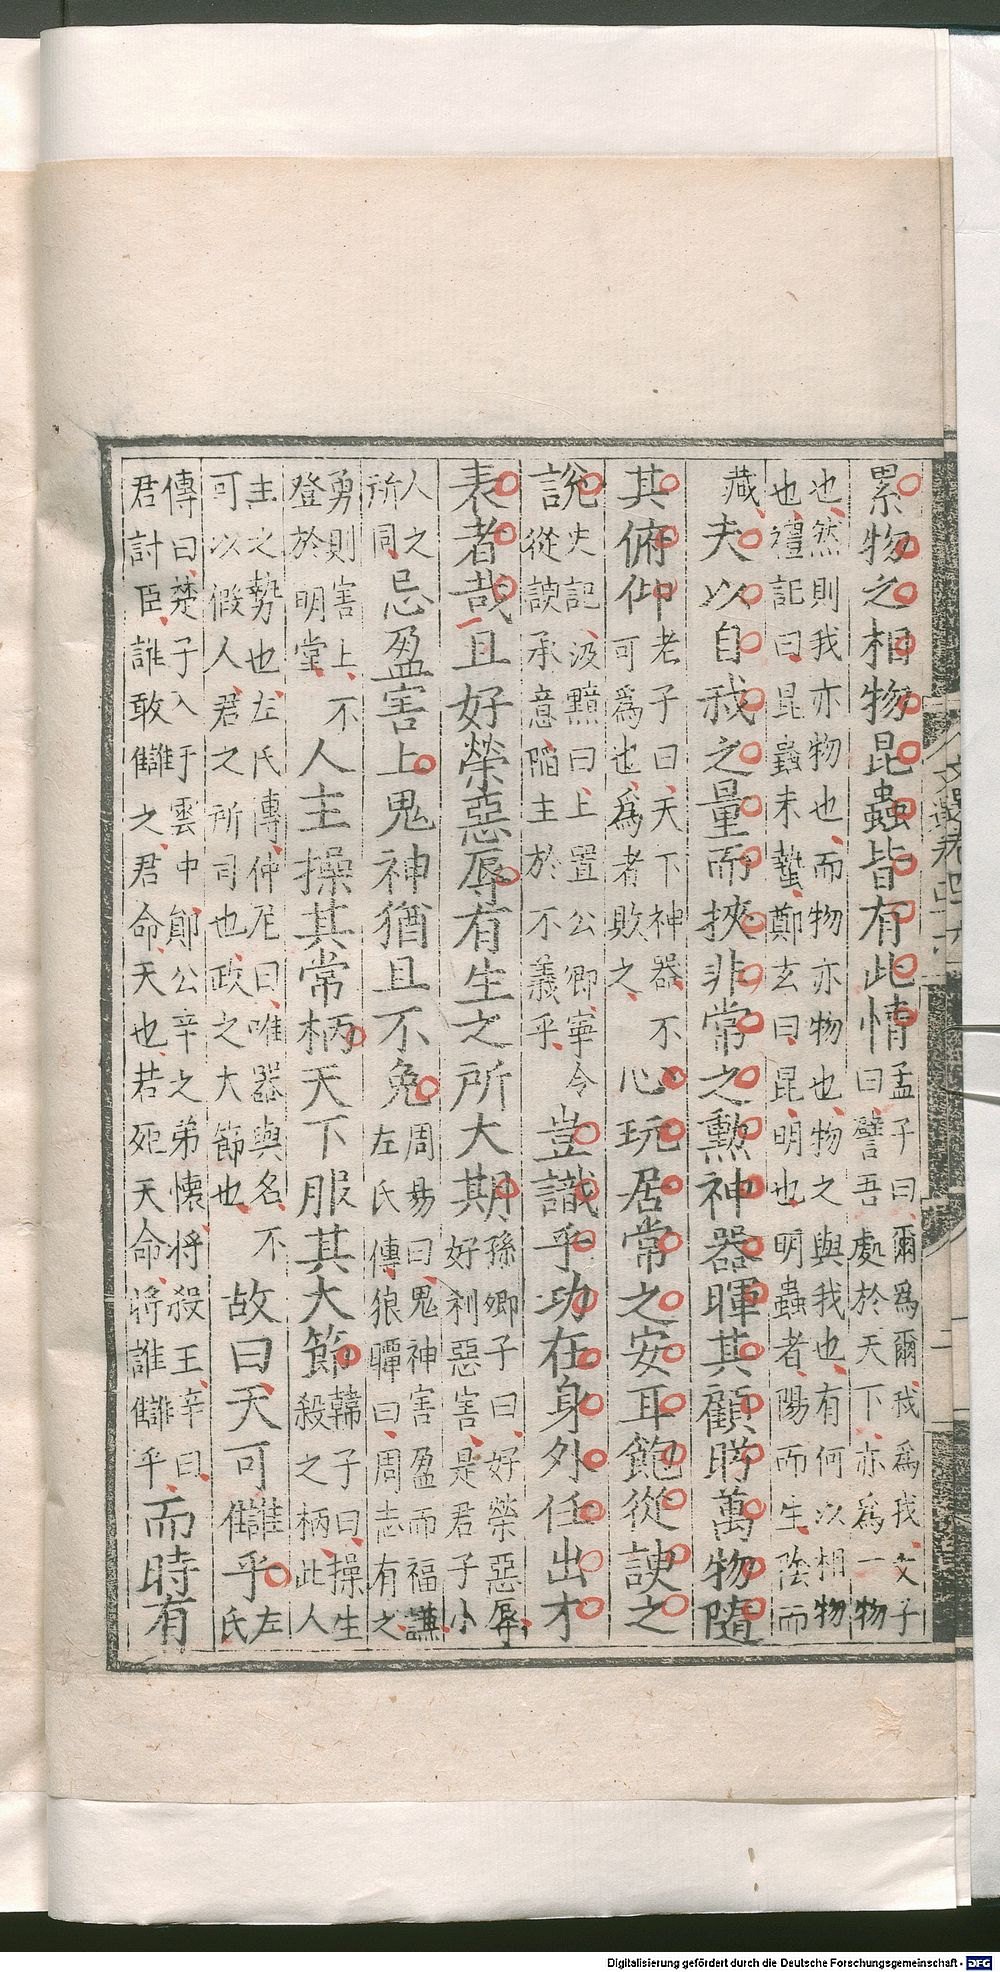 累物之相物昆蟲皆有此情孟子曰爾爲爾我爲我文子曰譬吾處於天下亦爲一物
也然則我亦物也而物亦物也物之與我也有何以相物也禮記曰昆蟲未蟄鄭玄曰昆明也明蟲者陽而生陰而
藏夫以自我之量而挾非常之勲神器暉其顧眄萬物隨
其俯仰老子曰天下神器不可爲也爲者敗之心玩居常之安耳飽從諛之
說史記汲黯曰上置公卿寧令從諛承意陷主於不義乎豈識乎功在身外任出才
表者哉且好榮惡辱有生之所大期孫卿子曰好榮惡辱好利惡害是君子小
人之所同忌盈害上鬼神猶且不免周易曰鬼神害盈而福謙左氏傳狼瞫曰周志有之
勇則害上不登於明堂人主操其常柄天下服其大節韓子曰操生殺之柄此人
主之勢也左氏傳仲尼曰唯器與名不可以假人君之所司也政之大節也故曰天可讎乎左氏
傳曰楚子入于雲中鄖公辛之弟懷將殺王辛曰君討臣誰敢讎之君命天也若死天命將誰讎乎而時有
文選卷四十六
二
Digitalisierung gefördert durch die Deutsche Forschungsgemeinschaft - DFG